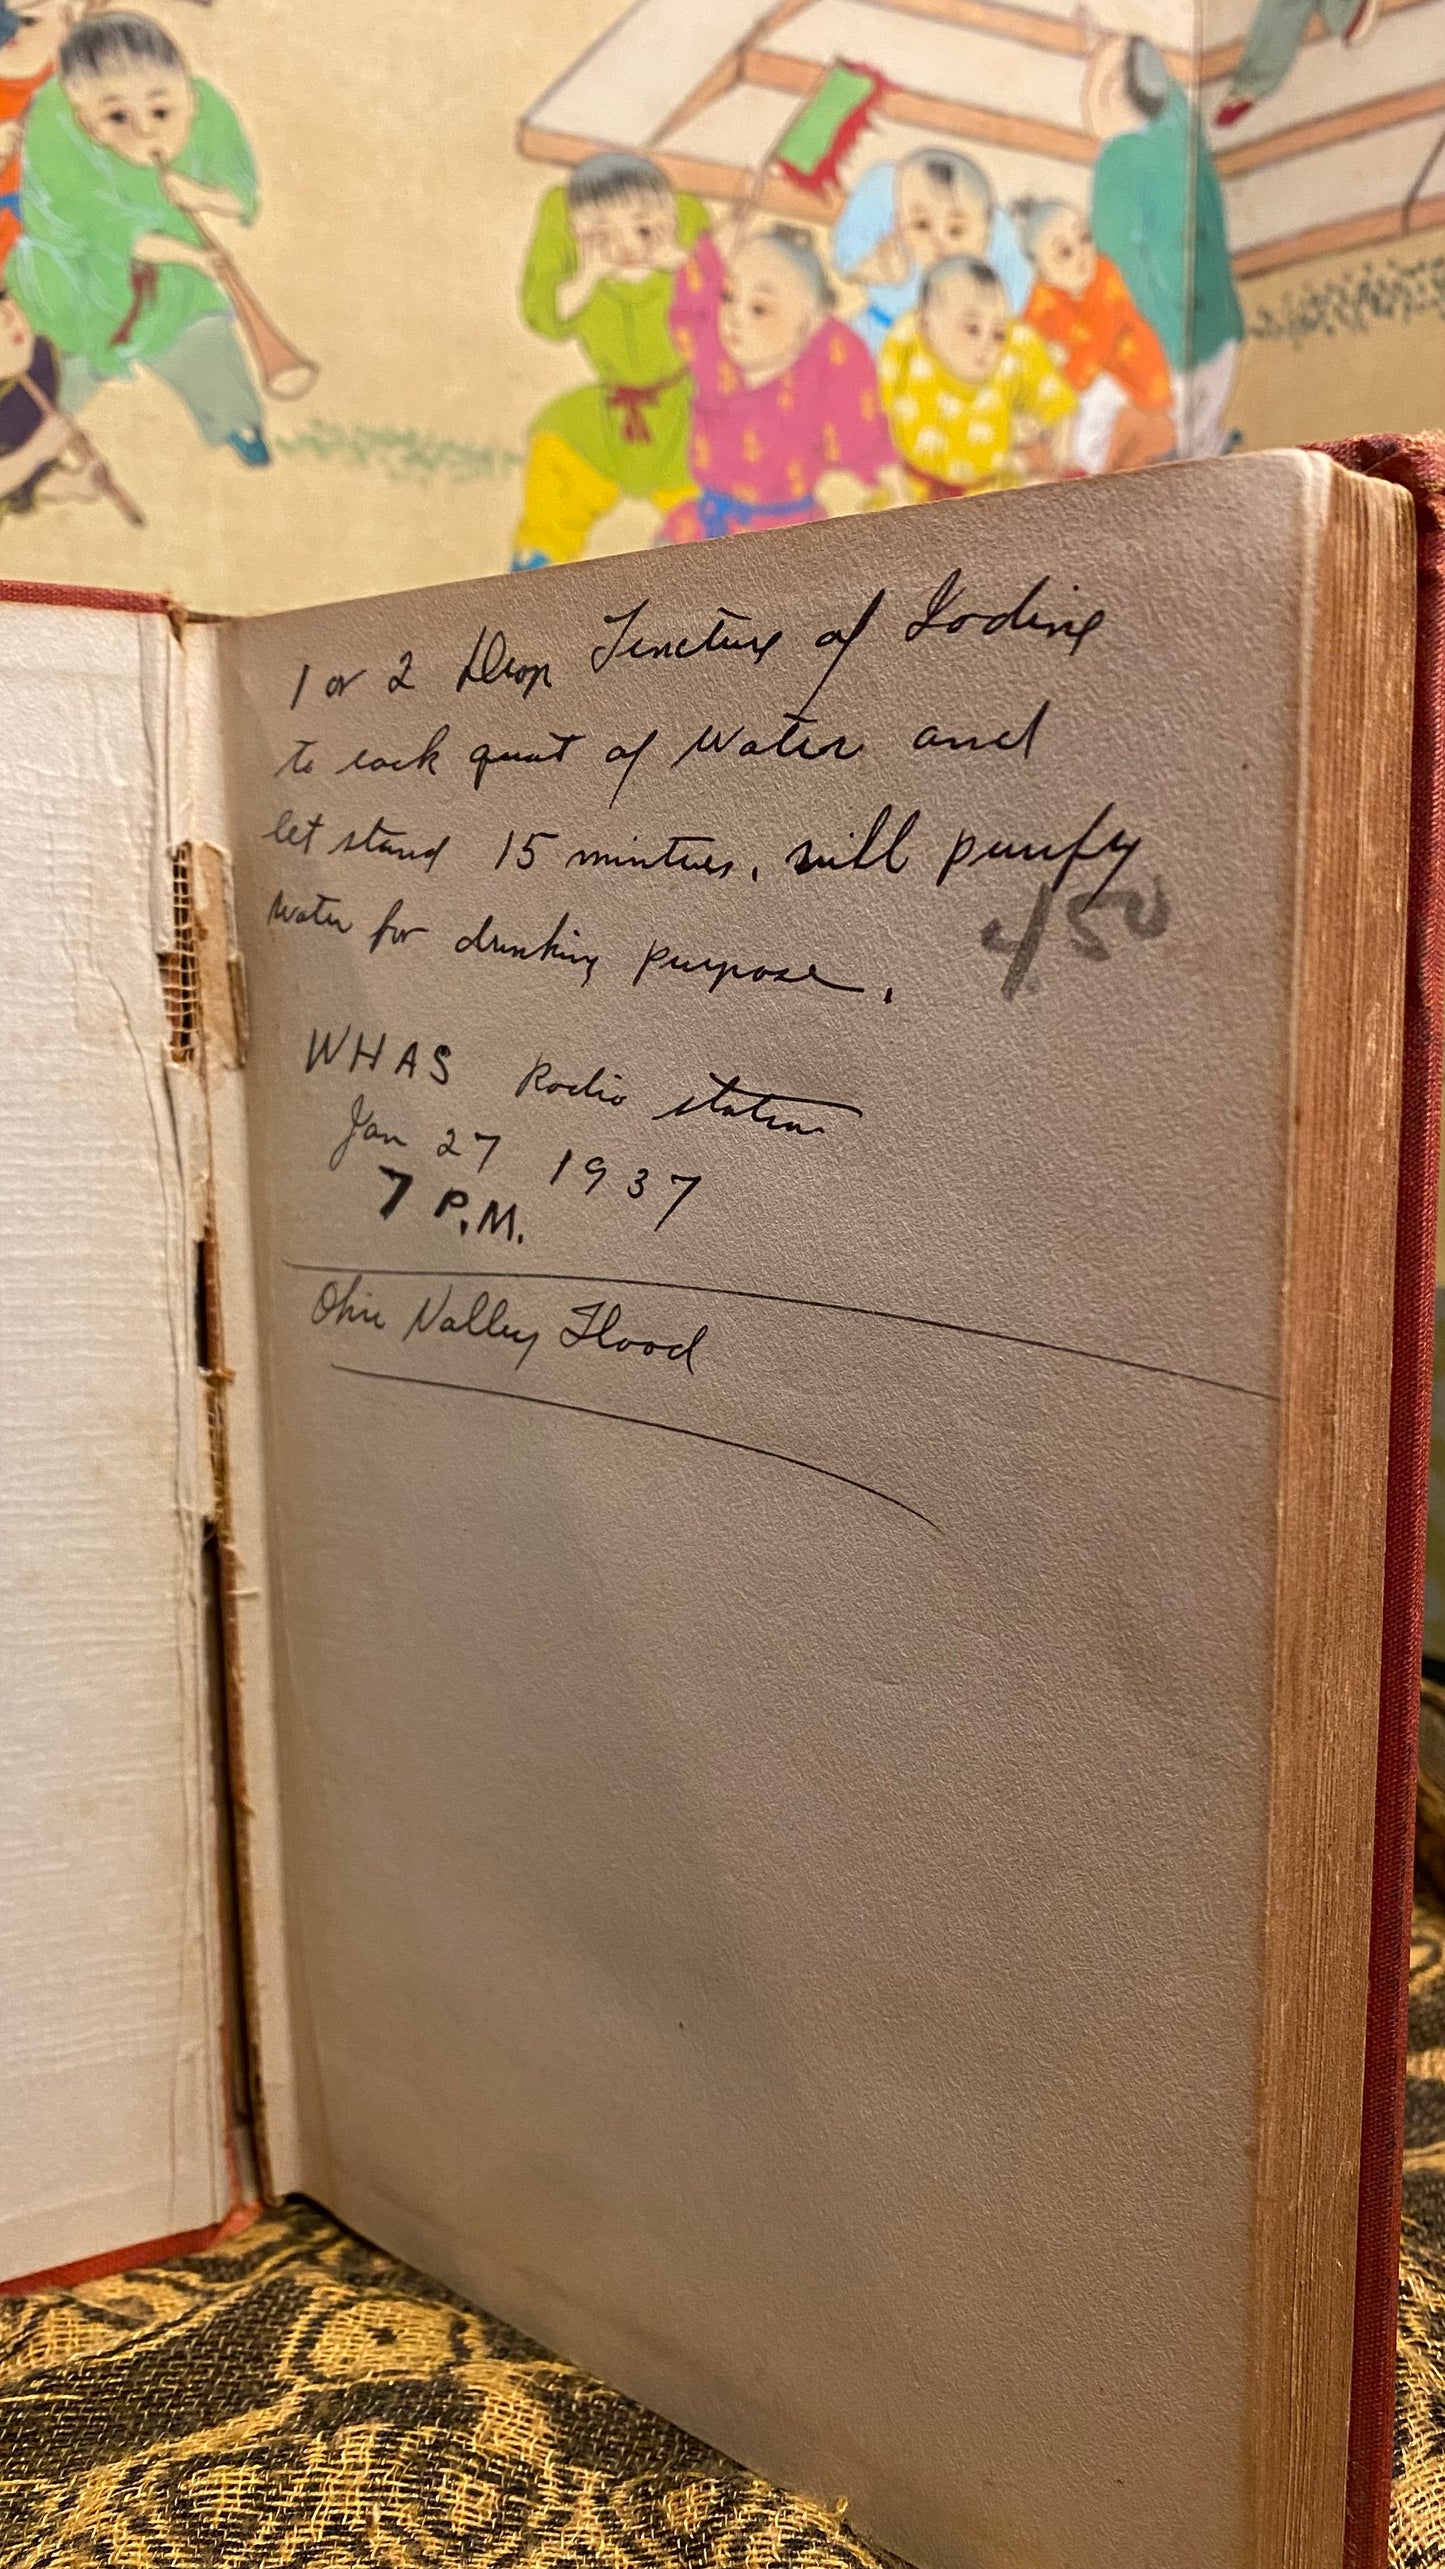 1 or 2 Drop Tencture of Iodine
to each quat of Water and
let stand 15 mintues. will purify
water for drinking purpose.
450
WHAS Radio station
Jan 27 1937
7 P.M.
Ohio Valley Flood